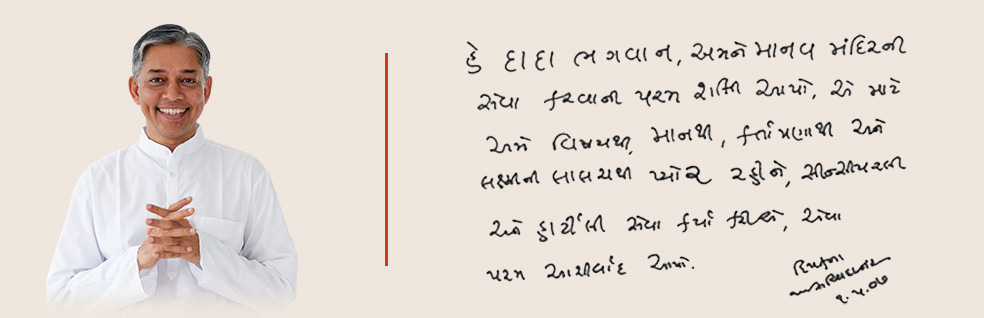 હે દાદા ભગવાન, અમને માનવ મંદિરની
સેવા કરવાની પરમ શક્તિ આપો, એ માટે
અમે વિષયથી, માનથી, કર્તાપણાથી અને
લક્ષ્મીની લાલચથી ચોખ્ખા રહીને, સીન્સીયરલી
અને હાર્ટીલી સેવા કર્યા કરીએ, એવા
પરમ આશીર્વાદ આપો.
દિપકના
જય સચ્ચિદાનંદ